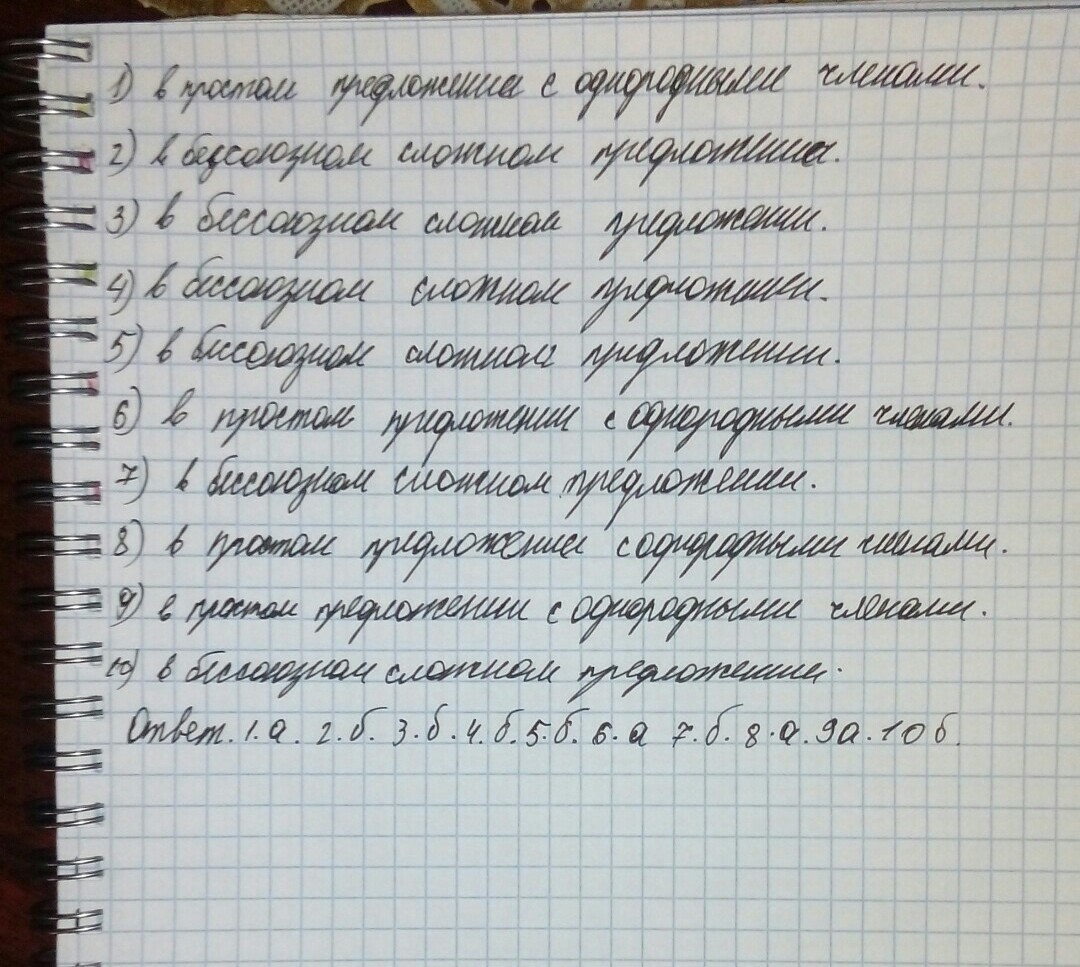 1) в простом предложении с однородными членами.
2) в бессоюзном сложном предложении.
3) в бессоюзном сложном предложении.
4) в бессоюзном сложном предложении.
5) в бессоюзном сложном предложении.
6) в простом предложении с однородными членами.
7) в бессоюзном сложном предложении.
8) в простом предложении с однородными членами.
9) в простом предложении с однородными членами.
10) в бессоюзном сложном предложении.
Ответ. 1. а. 2. б. 3. б. 4. б. 5. б. 6. а 7. б. 8. а. 9а. 10 б.